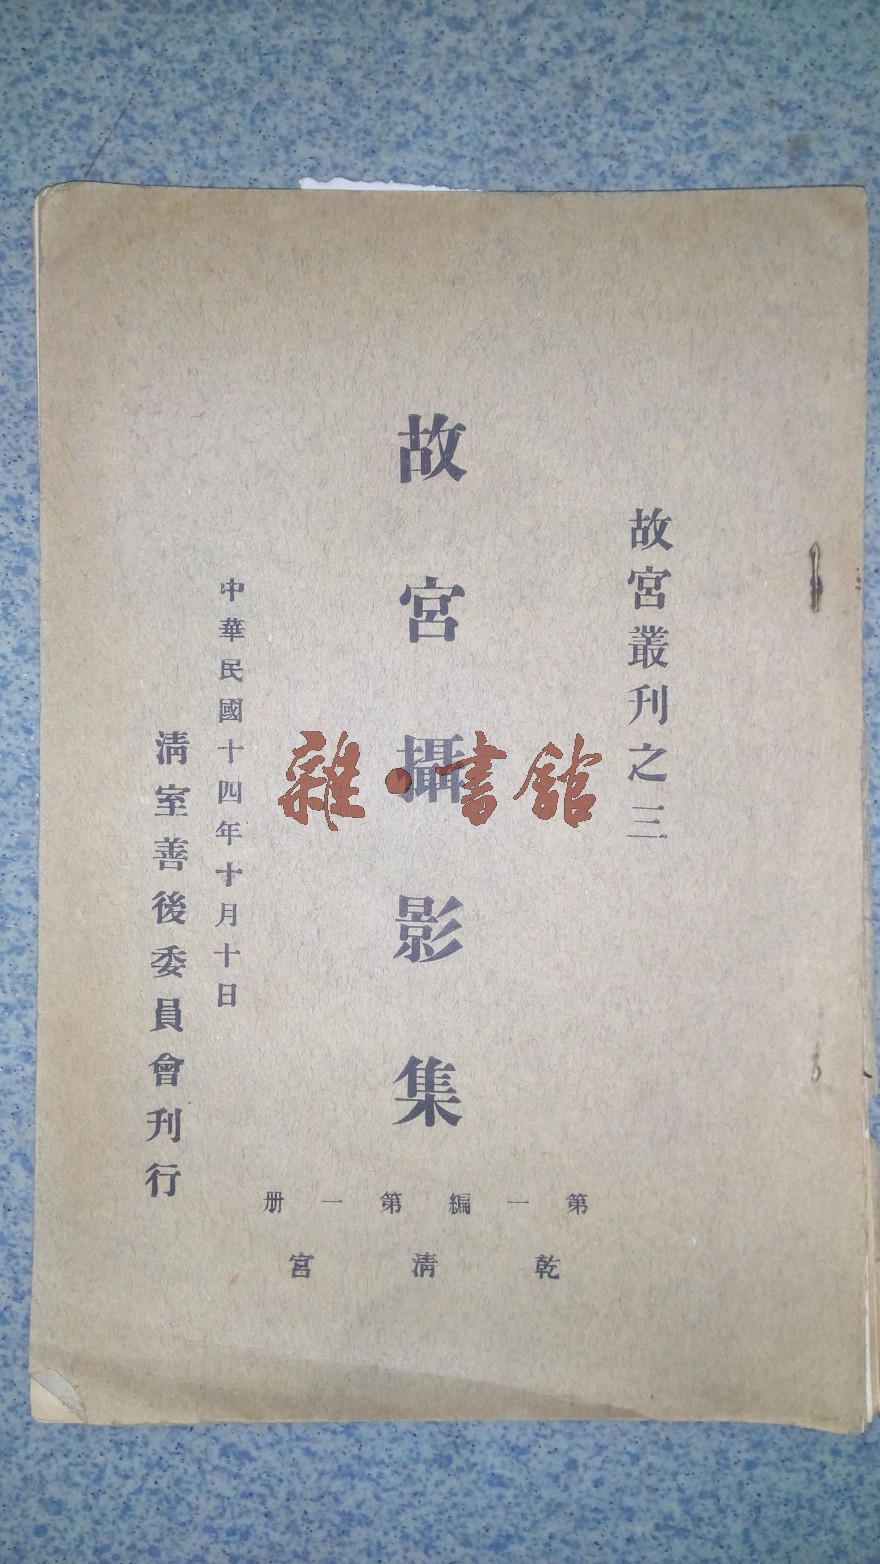 故宮叢刊之三
故宮攝影集
第一編第一册
乾清宮
中華民國十四年十月十日
清室善後委員會刊行
雜·書館